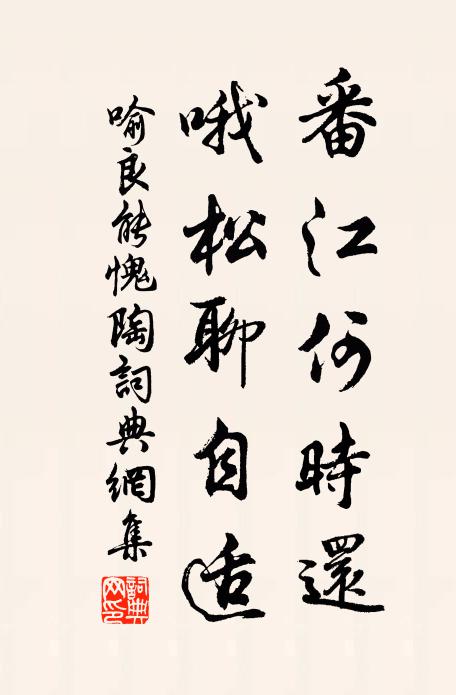 番江何時還
哦松聊自适
喻良能愧陶詞典網集
詞典網印